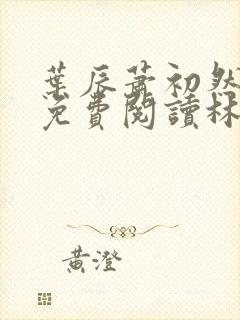 葉辰蕭初然
免費閱讀林
黃澄